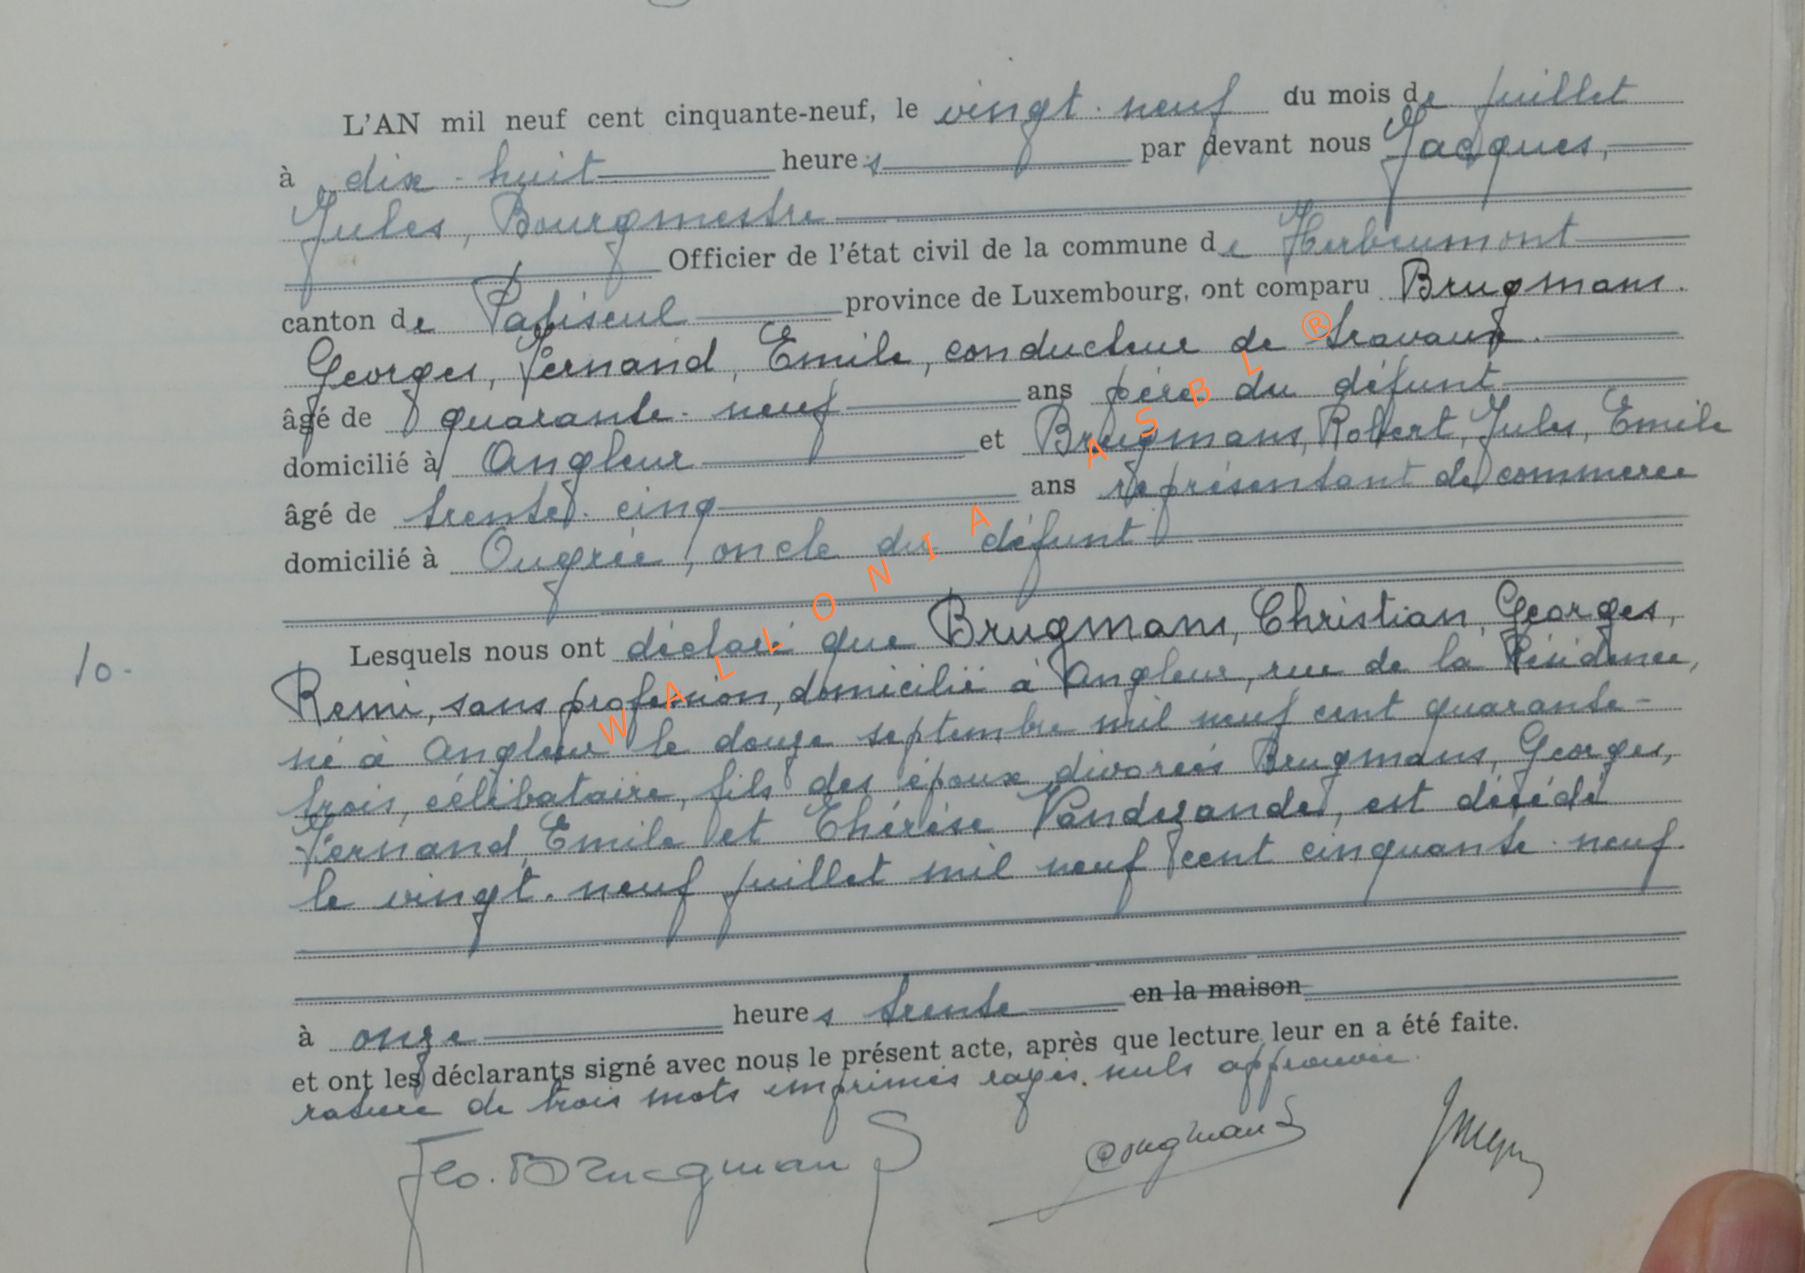 L'AN mil neuf cent cinquante-neuf, le vingt-neuf du mois de juillet
à dix-huit heures par devant nous Jacques,
Jules, Bourgmestre
Officier de l'état civil de la commune de Herbeumont
canton de Paliseul province de Luxembourg, ont comparu Brugmans.
Georges, Fernand, Emile, conducteur de travaux.
âgé de quarante-neuf ans père du défunt
domicilié à Angleur et Brugmans, Robert, Jules, Emile
âgé de trente-cinq ans représentant de commerce
domicilié à Ougrée, oncle du défunt
Lesquels nous ont déclaré que Brugmans, Christian, Georges,
10.-
Remi, sans profession, domicilié à Angleur, rue de la Résidence,
né à Angleur le douze septembre mil neuf cent quarante-
trois, célibataire, fils des époux divorcés Brugmans, Georges,
Fernand, Emile et Thérèse Vandezande, est décédé
le vingt-neuf juillet mil neuf cent cinquante-neuf.
à onze heures trente en la maison
et ont les déclarants signé avec nous le présent acte, après que lecture leur en a été faite.
rature de trois mots imprimés rayés nuls approuvée.
Geo. Brugmans Brugmans
WALLONIA ASBL ®